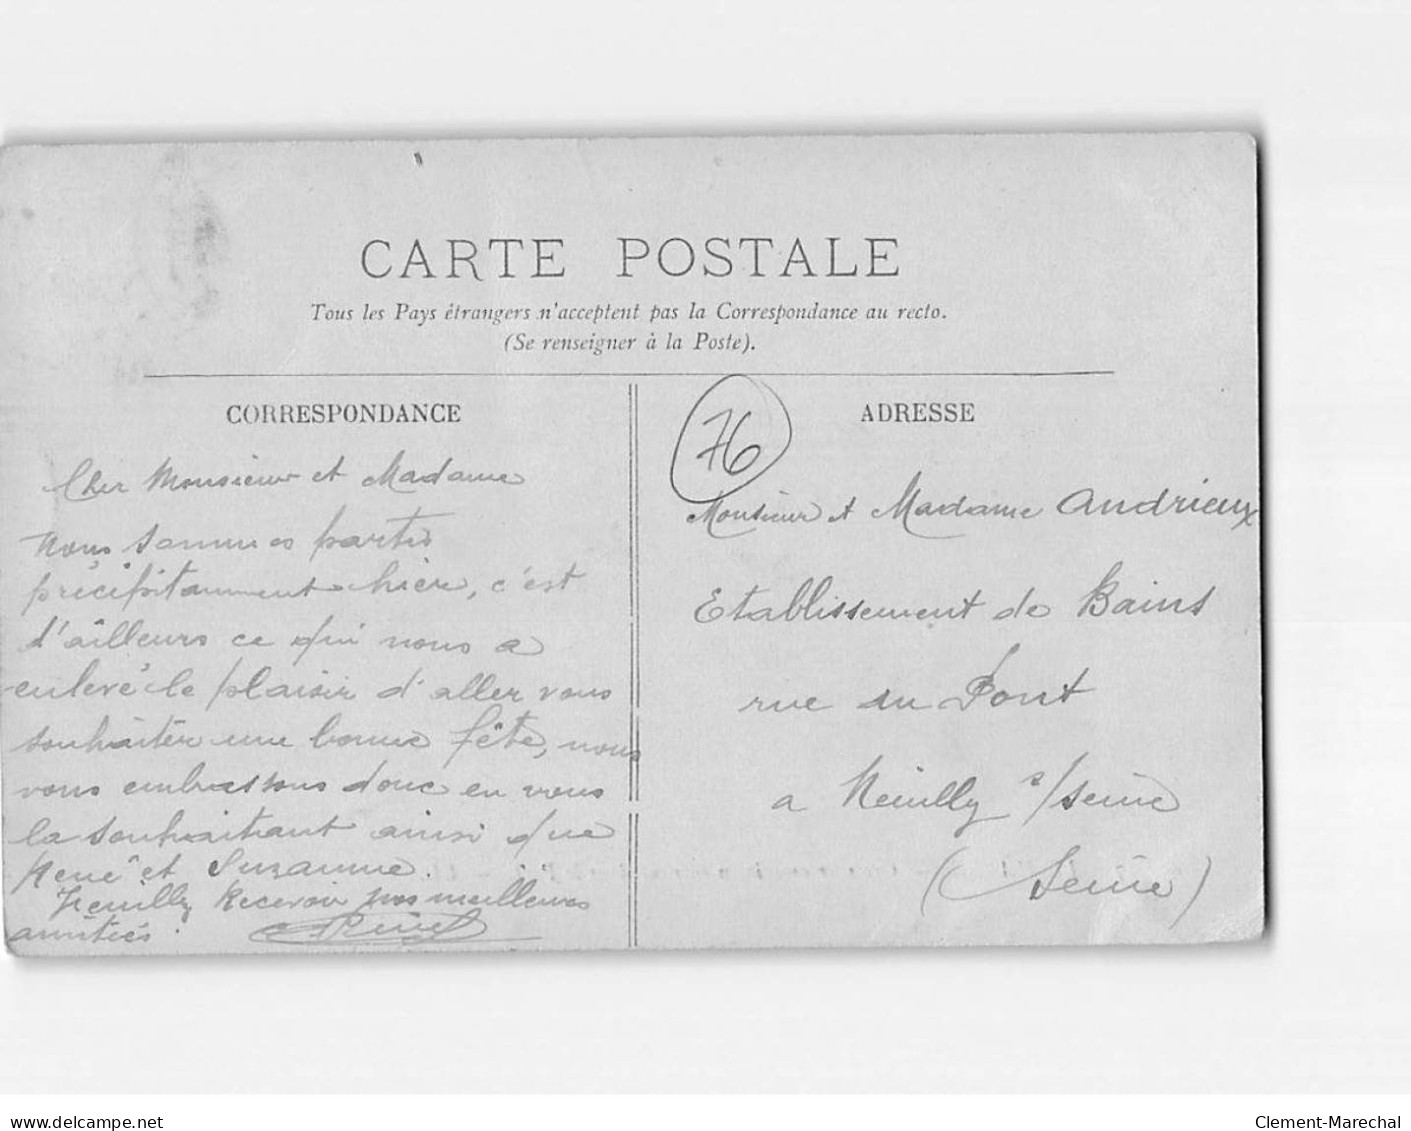 CARTE POSTALE
Tous les Pays étrangers n'acceptent pas la Correspondance au recto.
(Se renseigner à la Poste).
CORRESPONDANCE
Cher Monsieur et Madame
Nous sommes partis
précipitamment hier, c'est
d'ailleurs ce qui nous a
enlevé le plaisir d'aller vous
souhaiter une bonne fête, nous
vous embrassons donc en vous
la souhaitant ainsi que
René et Suzanne.
Recevoir nos meilleures
amitiés
76
ADRESSE
Monsieur et Madame Andrieux
Etablissement de Bains
rue du Pont
a Neuilly s/seine
(Seine)
www.delcampe.net
Clement-Marechal